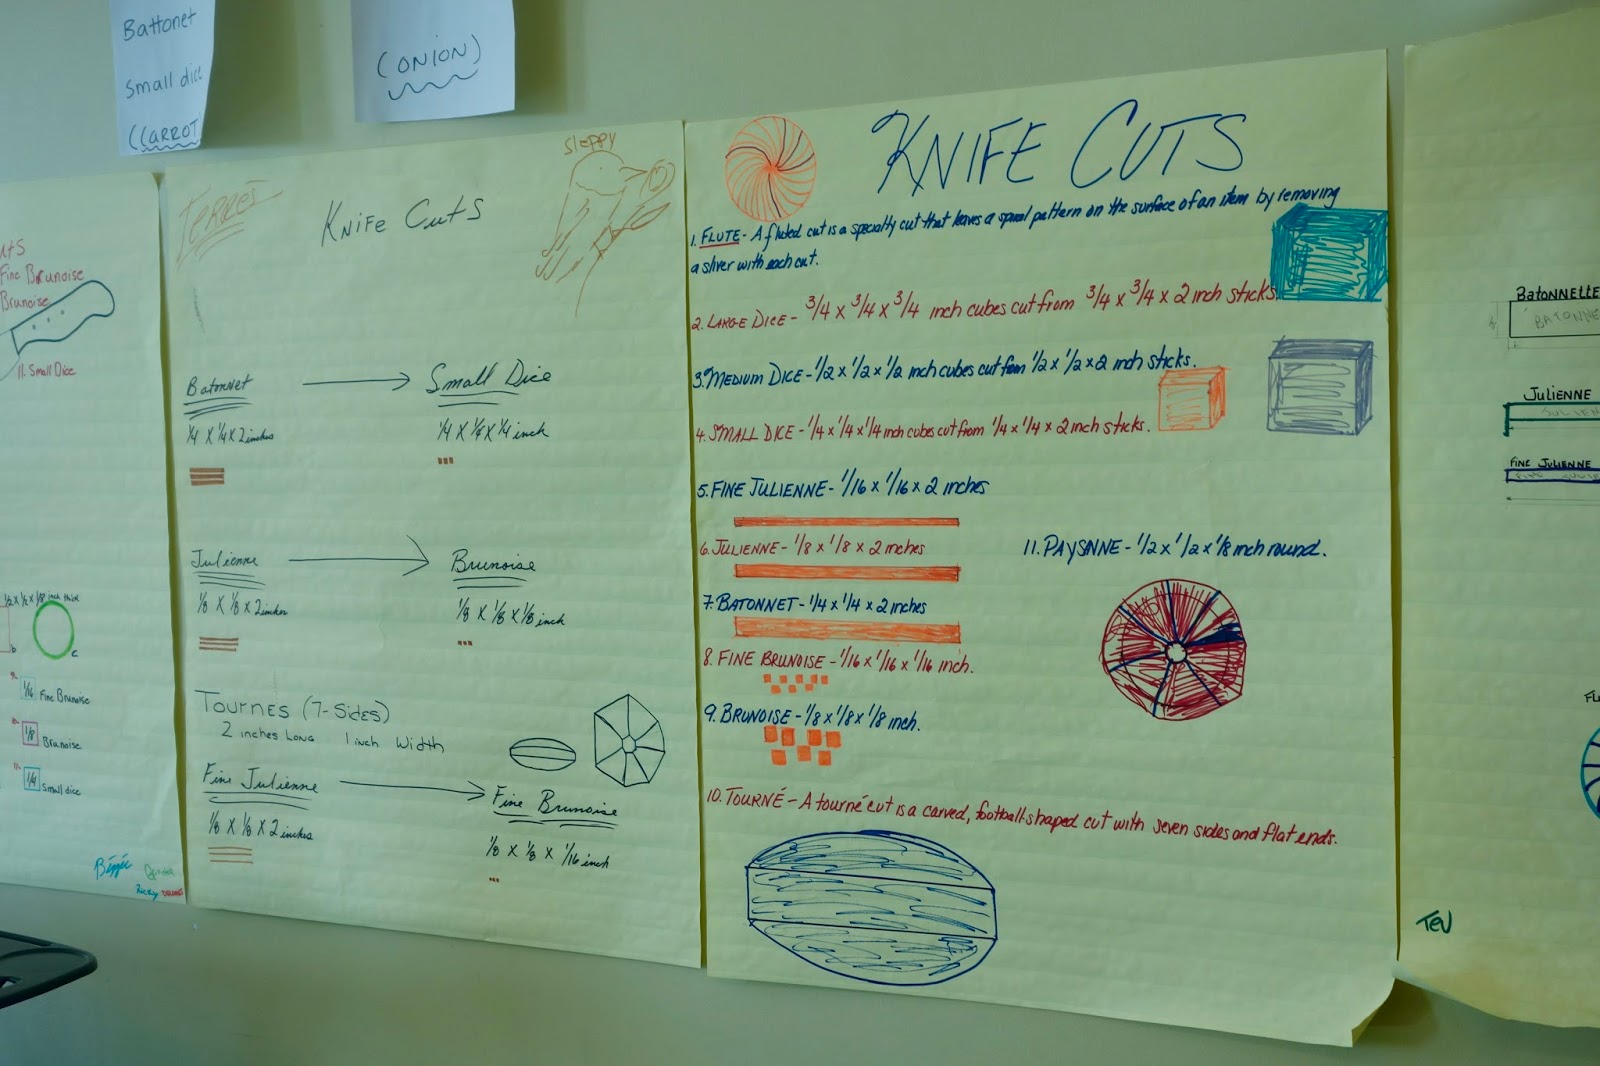 Battonet
Small dice
(CARROT
(ONION)
UTS
Fine Brunoise
Brunoise
11. Small Dice
1/2 x 1/2 x 1/8 inch thick
b
c
1/16 Fine Brunoise
1/8 Brunoise
1/4 Small dice
Ricky
TERRES
SLEPPY
Knife Cuts
Batonnet
Small Dice
1/4 X 1/4 X 2 inches
1/4 X 1/4 X 1/4 inch
Julienne
Brunoise
1/8 X 1/8 X 2 inches
1/8 X 1/8 X 1/8 inch
TOURNES (7-Sides)
2 inches Long 1 inch Width
Fine Julienne
Fine Brunoise
1/8 X 1/8 X 2 inches
1/8 X 1/8 X 1/16 inch
KNIFE CUTS
1. FLUTE - A fluted cut is a specialty cut that leaves a spiral pattern on the surface of an item by removing
a sliver with each cut.
2. LARGE DICE - 3/4 x 3/4 x 3/4 inch cubes cut from 3/4 x 3/4 x 2 inch sticks.
3. MEDIUM DICE - 1/2 x 1/2 x 1/2 inch cubes cut from 1/2 x 1/2 x 2 inch sticks.
4. SMALL DICE - 1/4 x 1/4 x 1/4 inch cubes cut from 1/4 x 1/4 x 2 inch sticks.
5. FINE JULIENNE - 1/16 x 1/16 x 2 inches
6. JULIENNE - 1/8 x 1/8 x 2 inches
7. BATONNET - 1/4 x 1/4 x 2 inches
8. FINE BRUNOISE - 1/16 x 1/16 x 1/16 inch.
9. BRUNOISE - 1/8 x 1/8 x 1/8 inch.
10. TOURNÉ - A tourné cut is a carved, football-shaped cut with seven sides and flat ends.
11. PAYSNNE - 1/2 x 1/2 x 1/8 inch round.
BATONNETTE
BATONNE
JULIENNE
JULIEN
FINE JULIENNE
FL
TEV